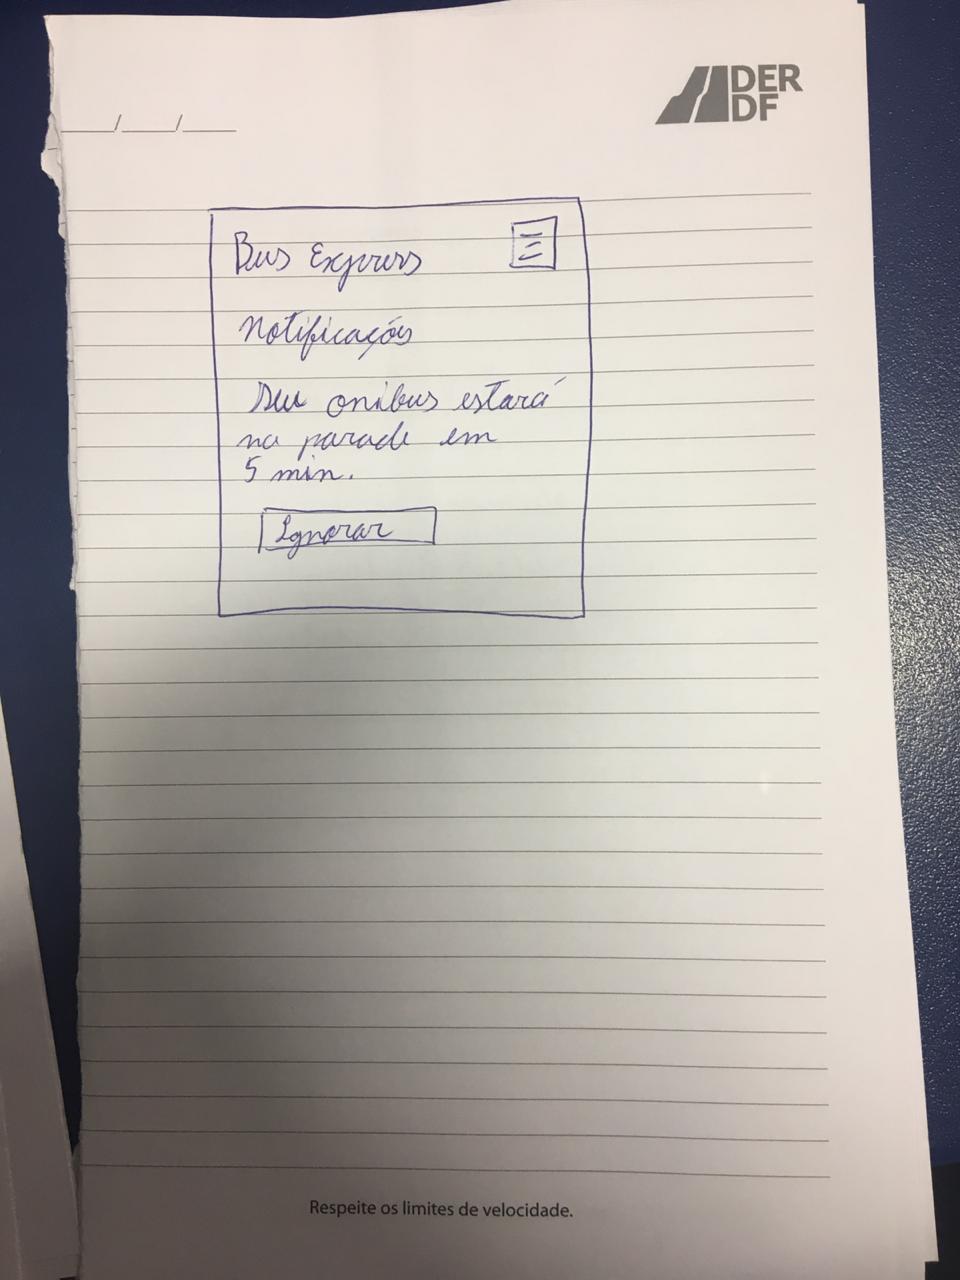 DER
DF
Bus Express
Notificações
Seu onibus estará
na parada em
5 min.
Ignorar
Respeite os limites de velocidade.